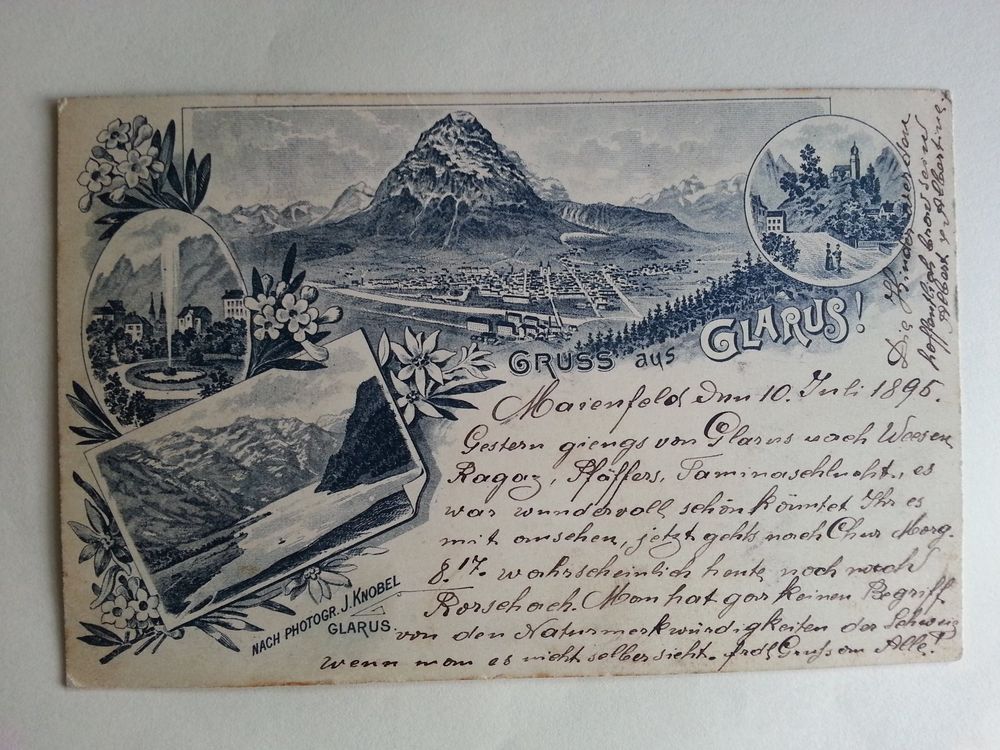 GRUSS aus GLARUS!
Maienfeld den 10. Juli 1895.
Gestern giengs von Glarus nach Weesen,
Ragaz, Pfäffers, Taminaschlucht, es
war wundervoll schön könntet Ihr es
mit ansehen, jetzt gehts nach Chur Morg.
8.17. wahrscheinlich heute noch nach
Rorschach. Man hat gar keinen Begriff
von den Naturmerkwürdigkeiten der Schweiz
wenn man es nicht selber sieht. Gruss an Alle!
Die Kinder werden
hoffentlich brav sein
Albert u Albertine.
NACH PHOTOGR. J. KNOBEL
GLARUS.